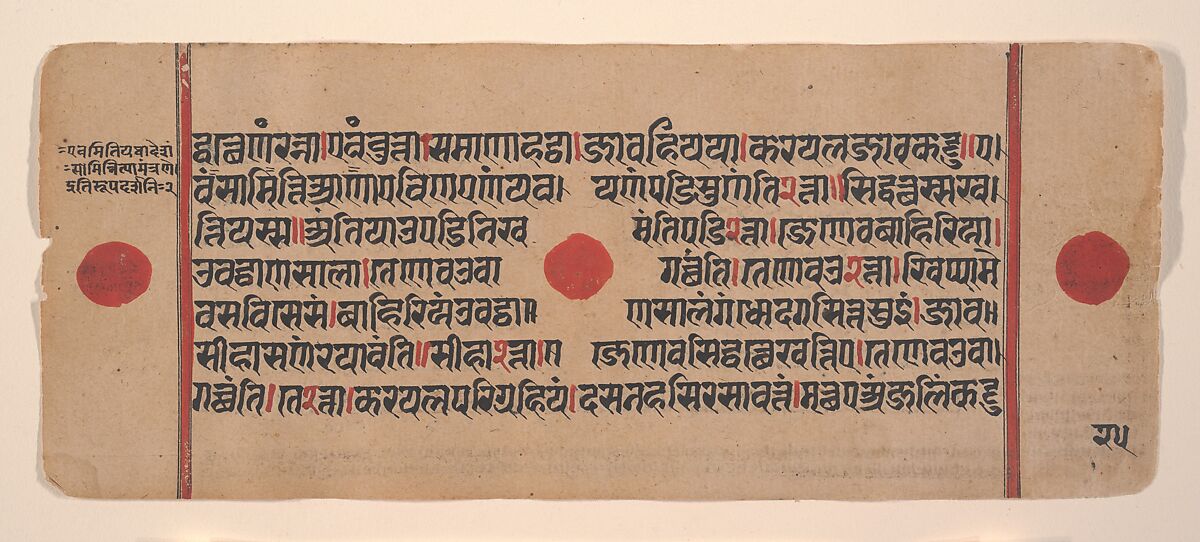 =एवमितियथादेशं
=स्वामिन्नित्यामंत्रणे
द्धत्थेणंरन्ना।एवंवुत्ता।समाणाहट्ठा।जावहियया।करयलजावकट्टु॥ए।
वंसामित्तिआणाएविणएणंवय। यणंपडिसुणंति२त्ता॥सिद्धत्थस्सख।
त्तियस्स॥अंतियाउपडिनिख मंतिपडि२त्ता।जेणेवबाहिरित्रा।
उवट्ठाणसाला।तेणेवउवा गछंति।तेणेवउ२त्ता।खिप्पामे
वसविसेसं।बाहिरित्रंउवट्ठा॥ णसालंगंधोदगसित्तसुइं।जाव॥
सीहासणंरयावंति॥सीहा२त्ता।॥ जेणेवसिद्धत्थेखत्तिए।तेणेवउवा।
गछंति।ते२त्ता।करयलपरिग्रहियं।दसनहंसिरसावत्तं।मत्थएअंजलिंकट्टु
२५